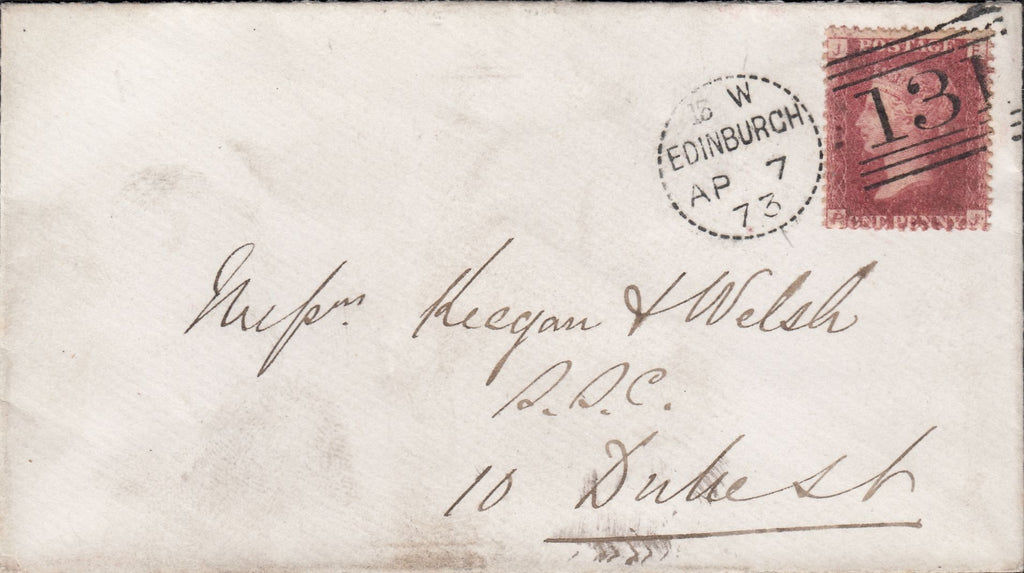 J POSTAGE
131
ONE PENNY
15 W
EDINBURGH
AP 7
73
Messrs Keegan & Welsh
S.S.C.
10 Duke st